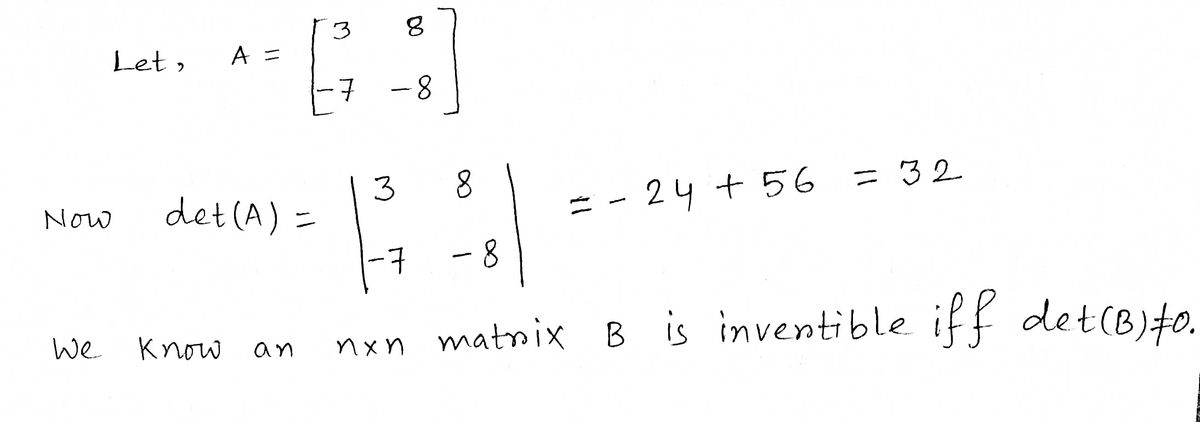 Let, A = [ 3 8
-7 -8 ]
Now det(A) = | 3 8
-7 -8 | = - 24 + 56 = 32
We know an nxn matrix B is invertible iff det(B)≠0.